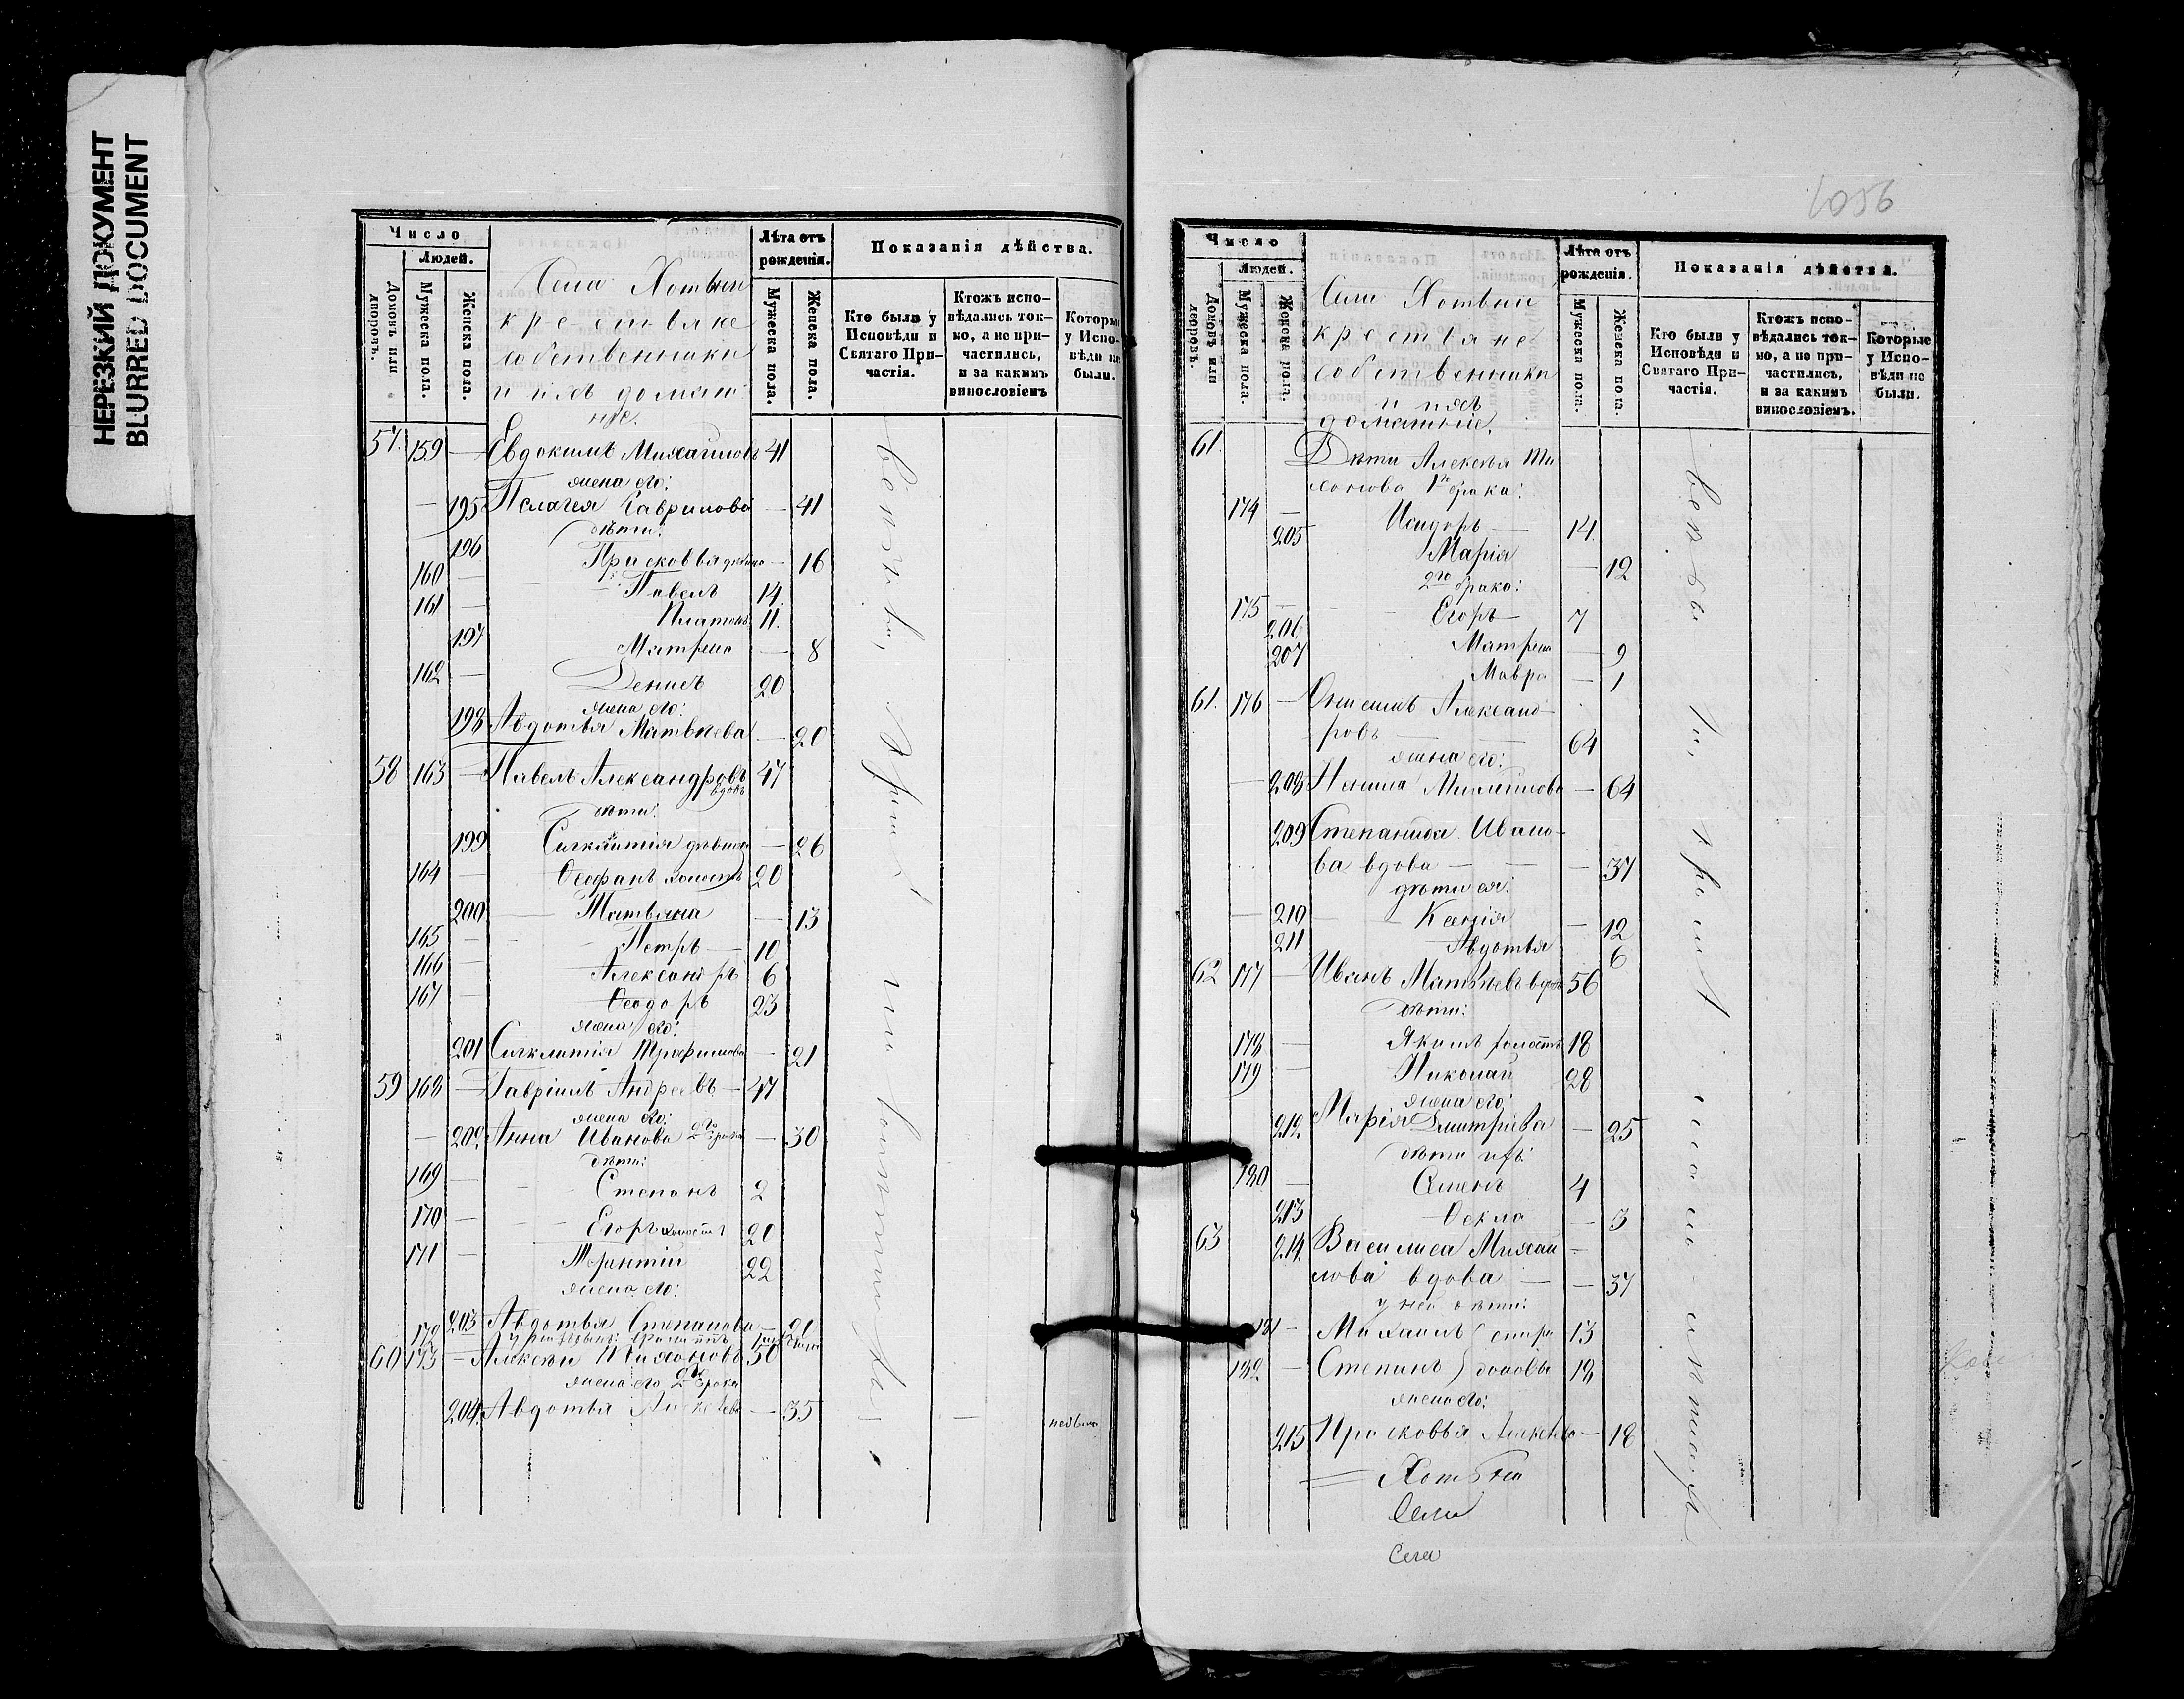 НЕРЕЗКИЙ ДОКУМЕНТ
BLURRED DOCUMENT
Число
Людей.
Домовъ или дворовъ.
Мужеска пола.
Женска пола.
Села Хотѣни
крестьяне
собственники
и ихъ домаш
ніе.
Лѣта отъ рожденія.
Мужеска пола.
Женска пола.
Показанія дѣйства.
Кто были у Исповѣди и Святаго Причастія.
Ктожъ исповѣдались токмо, а не причастились, и за какимъ винословіемъ
Которые у Исповѣди не были.
57. 159 — Евдокимъ Михайловъ 41
жена его:
— 195 Пелагея Гаврилова — 41
дѣти:
196 Прасковья дѣвица — 16
160 — Павелъ 14.
161 — Платонъ 11.
197 Матрена — 8
162 — Денисъ 20
жена его:
198 Авдотья Матвѣева — 20
58 163 — Павелъ Александровъ вдовъ 47
дѣти:
199 Сигклитія дѣвица — 26
164 — Ѳеофанъ холостъ 20
200 Татьяна — 13
165 — Петръ — 10
166 — Александръ 6
167 — Ѳеодоръ 23
жена его:
201 Сигклитія Трофимова — 21
59 168 — Гавріилъ Андреевъ — 47
жена его:
— 202 Анна Иванова 2го брака — 30
дѣти:
169 — Степанъ 2
170 — Егоръ холостъ 20
171 — Терентій 22
жена его:
203 Авдотья Степанова — 21
172
60 173 — Алексѣй Тихоновъ 50
жена его 2го брака
204. Авдотья — 35
небыла
1056
Число
Людей.
Домовъ или дворовъ.
Мужеска пола.
Женска пола.
Села Хотѣни
крестьяне
собственники
и ихъ
домашніе.
Лѣта отъ рожденія.
Мужеска пола.
Женска пола.
Показанія дѣйства.
Кто были у Исповѣди и Святаго Причастія.
Ктожъ исповѣдались токмо, а не причастились, и за какимъ винословіемъ.
Которые у Исповѣди не были.
61. Дѣти Алексѣя Ти
хонова 1го брака:
174 — Исидоръ — 14.
205 Марія — 12
2го брака:
175 — Егоръ — 7
206 Матрена — 9
207 Мавра — 1
61. 176 — Онисимъ Александ-
ровъ — 64
жена его:
— 208 — 64
209 Степанида Ивано-
ва вдова — — 37
дѣти ея:
— 210 Ксенія — 12
211 Авдотья 6
62 177 — Иванъ Матвѣевъ вдовъ 56
дѣти:
178 — Якимъ холостъ 18
179 — Николай 28
жена его:
212. Марія Дмитріева — 25
дѣти ихъ:
180 — Семенъ 4
213 Ѳекла — 3
63 214. Василиса Михай —
лова вдова — — 37
у ней дѣти:
181 — Михаилъ 13
182 — Степанъ 18
жена его:
215 Прасковья Алексѣева — 18
Хотѣни
Села
Села